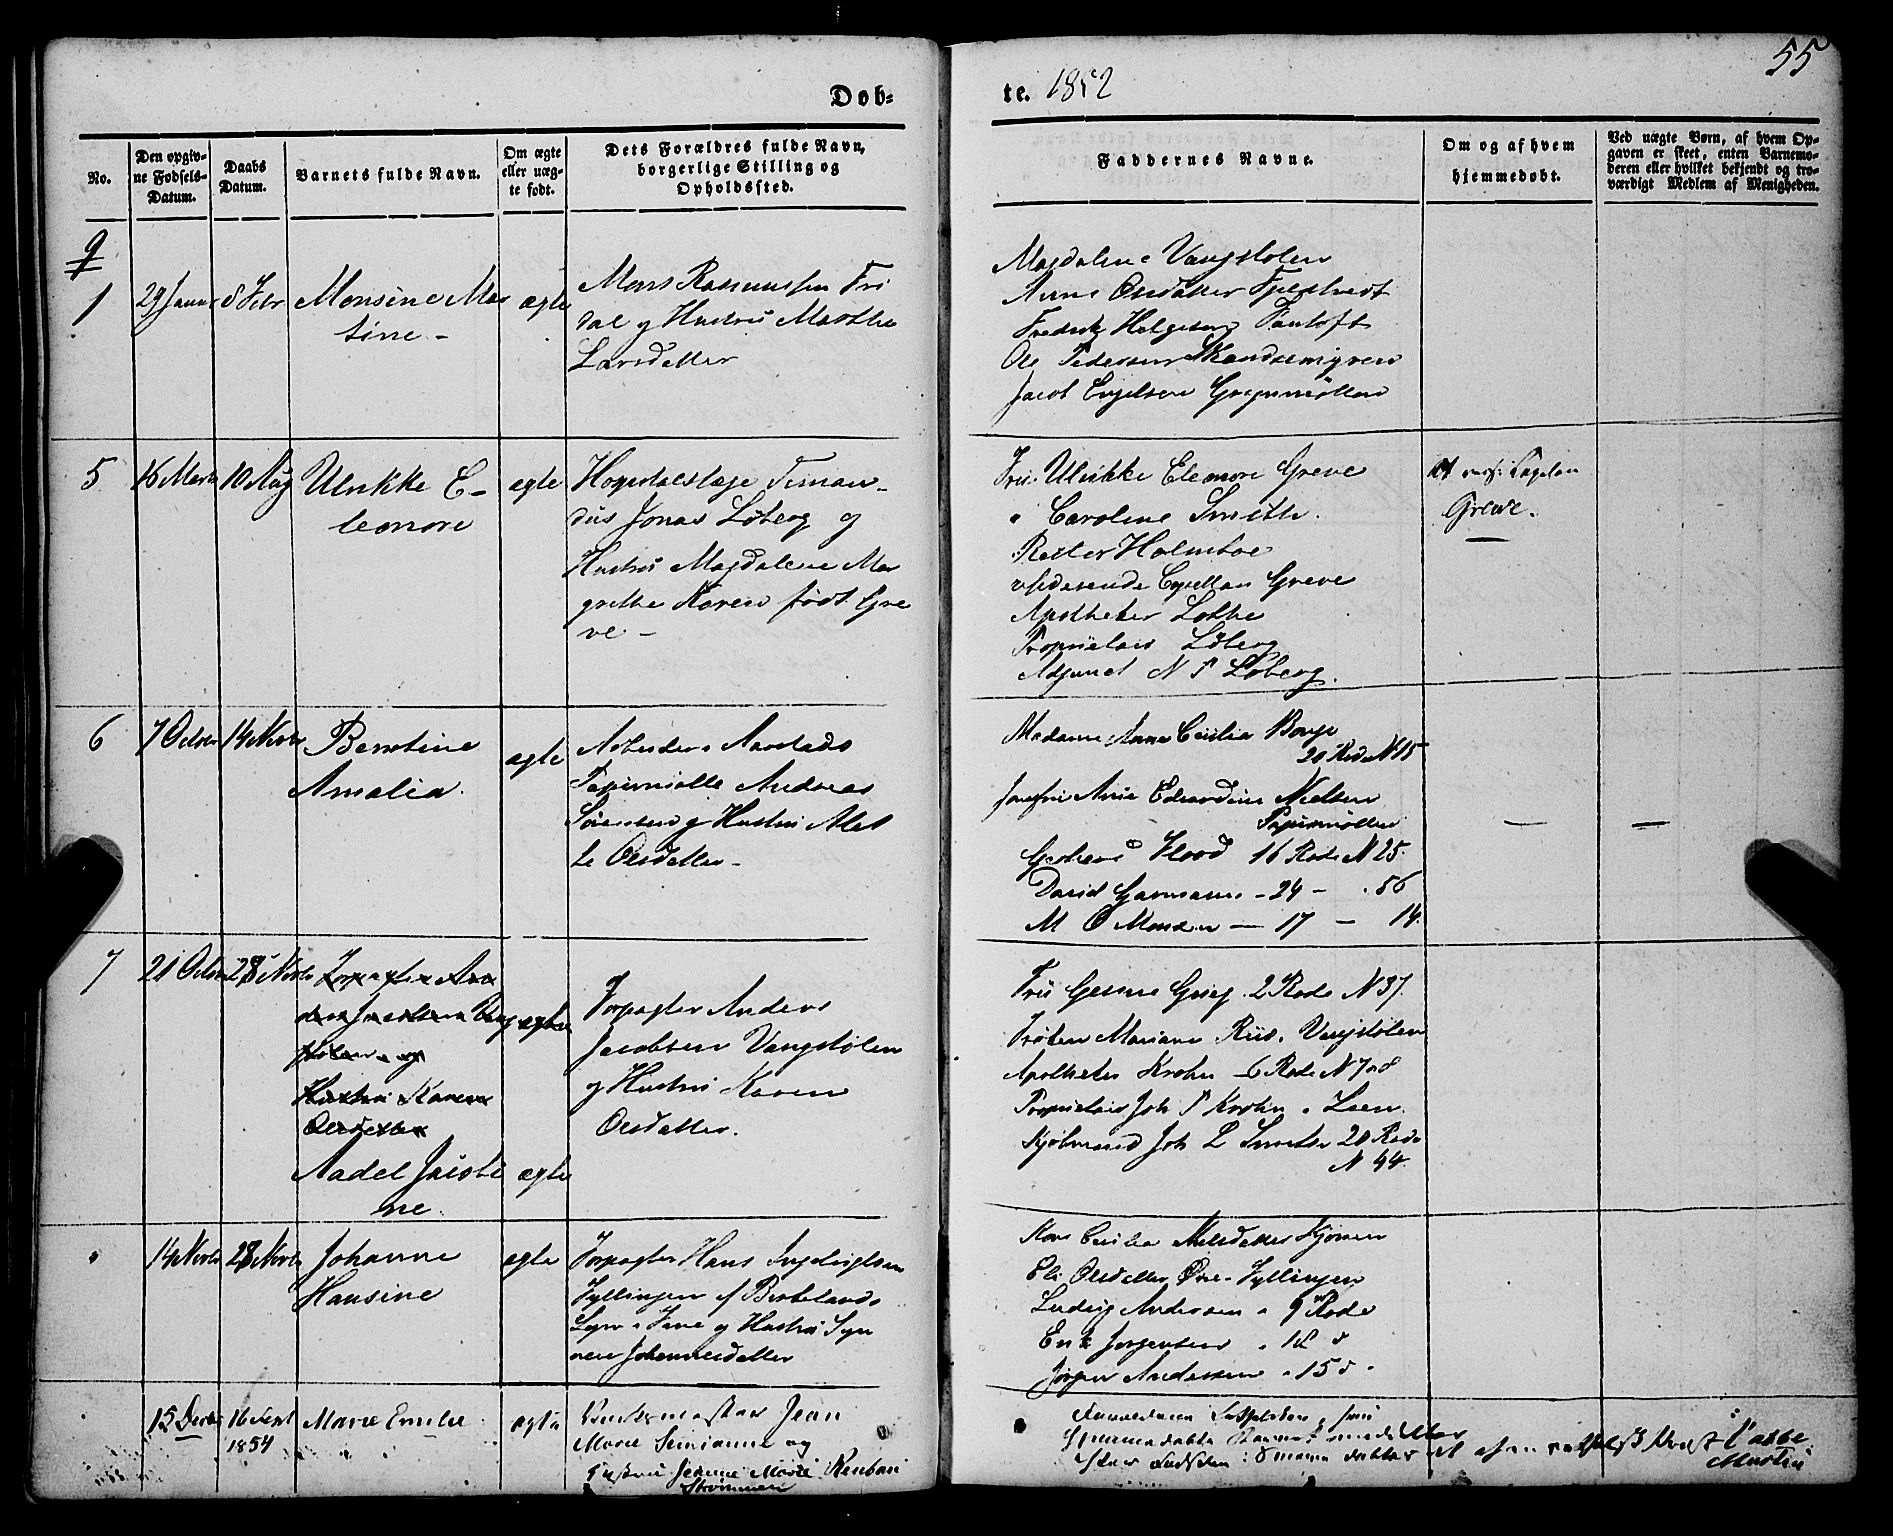 55
Dob=
te. 1852
No.
Den opgiv-
ne Fødsels-
Datum.
Daabs
Datum.
Barnets fulde Navn.
Om ægte
eller uæg-
te født.
Dets Forældres fulde Navn,
borgerlige Stilling og
Opholdssted.
Faddernes Navne.
Om og af hvem
hjemmedøbt.
Ved uægte Børn, af hvem Op-
gaven er skeet, enten Barnemo-
deren eller hvilket bekjendt og tro-
værdigt Medlem af Menigheden.
1
29 Januar
8 Febr
Monsine Mar
tine -
ægte
Mons Rasmussen Fri
dal og Hustru Marthe
Larsdatter
Magdalene Vangstolen
Anne Olsdatter
Fredrik Helgesen Fantoft
Ole Pedersen
Jacob Engelsen
5
16 Marts
10 Aug
Ulrikke E-
leonore
ægte
Hospitalslæge Timan-
dus Jonas Løberg og
Hustru Magdalene Mar
grethe Karen født Gre
ve -
Fru Ulrikke Eleonore Greve
" Caroline Smith.
Rector Holmboe
residerende Capellan Greve
Apotheker Lothe
Proprietair Løberg
Adjunct N P Løberg.
af res: Capelan
Greve.
6
7 Octbr
14 Novbr
Berntine
Amalia.
ægte
Arbeider i Aarstads
Papirmølle Andreas
Sørensen og Hustru Alet
te Olsdatter -
Madame Anna Cecilia Borge
20 Rode N 15
Jomfru Anne Edvardine Nielsen
Papirmøllen
Flood 16 Rode N 25.
David Garmann - 24 - . 56
M O Monsen - 17 - 14.
7
21 Octbr
28 Novbr
Forpagter An
ders Jacobsen Vang
stølen og
Hustru Karen
Olsdatter
Aadel Jacobi
ne.
ægte
ægte
Forpagter Anders
Jacobsen Vangstølen
og Hustru Karen
Olsdatter.
Fru Gesine Grieg 2 Rode N 37.
Frøken Mariane Riis. Vangstølen
Apotheker Krohn - 6 Rode N 7 & 8
Proprietair Joh P Krohn
Kjøbmand Joh L Smith 20 Rode
N 44.
14 Novbr
28 Novbr
Johanne
Hansine
ægte
Forpagter Hans Ingebrigtsen
Fyllingen af Birkelands
Sogn i Fane og Hustru Syn
neve Johannesdatter
Cecilia Nilsdatter
Eli Olsdatter Øvre-Fyllingen
Ludvig Andersen " 9 Rode
Erik Jørgensen " 18 "
Jørgen Andersen " 15 "
15 Decbr
16 Sept
1854
Marie Emelie
ægte
Jean
Marie og
Hustru Jeanne Marie